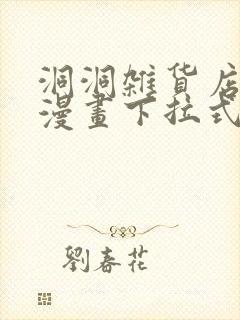 洞洞雜貨店
漫畫下拉式
劉春花